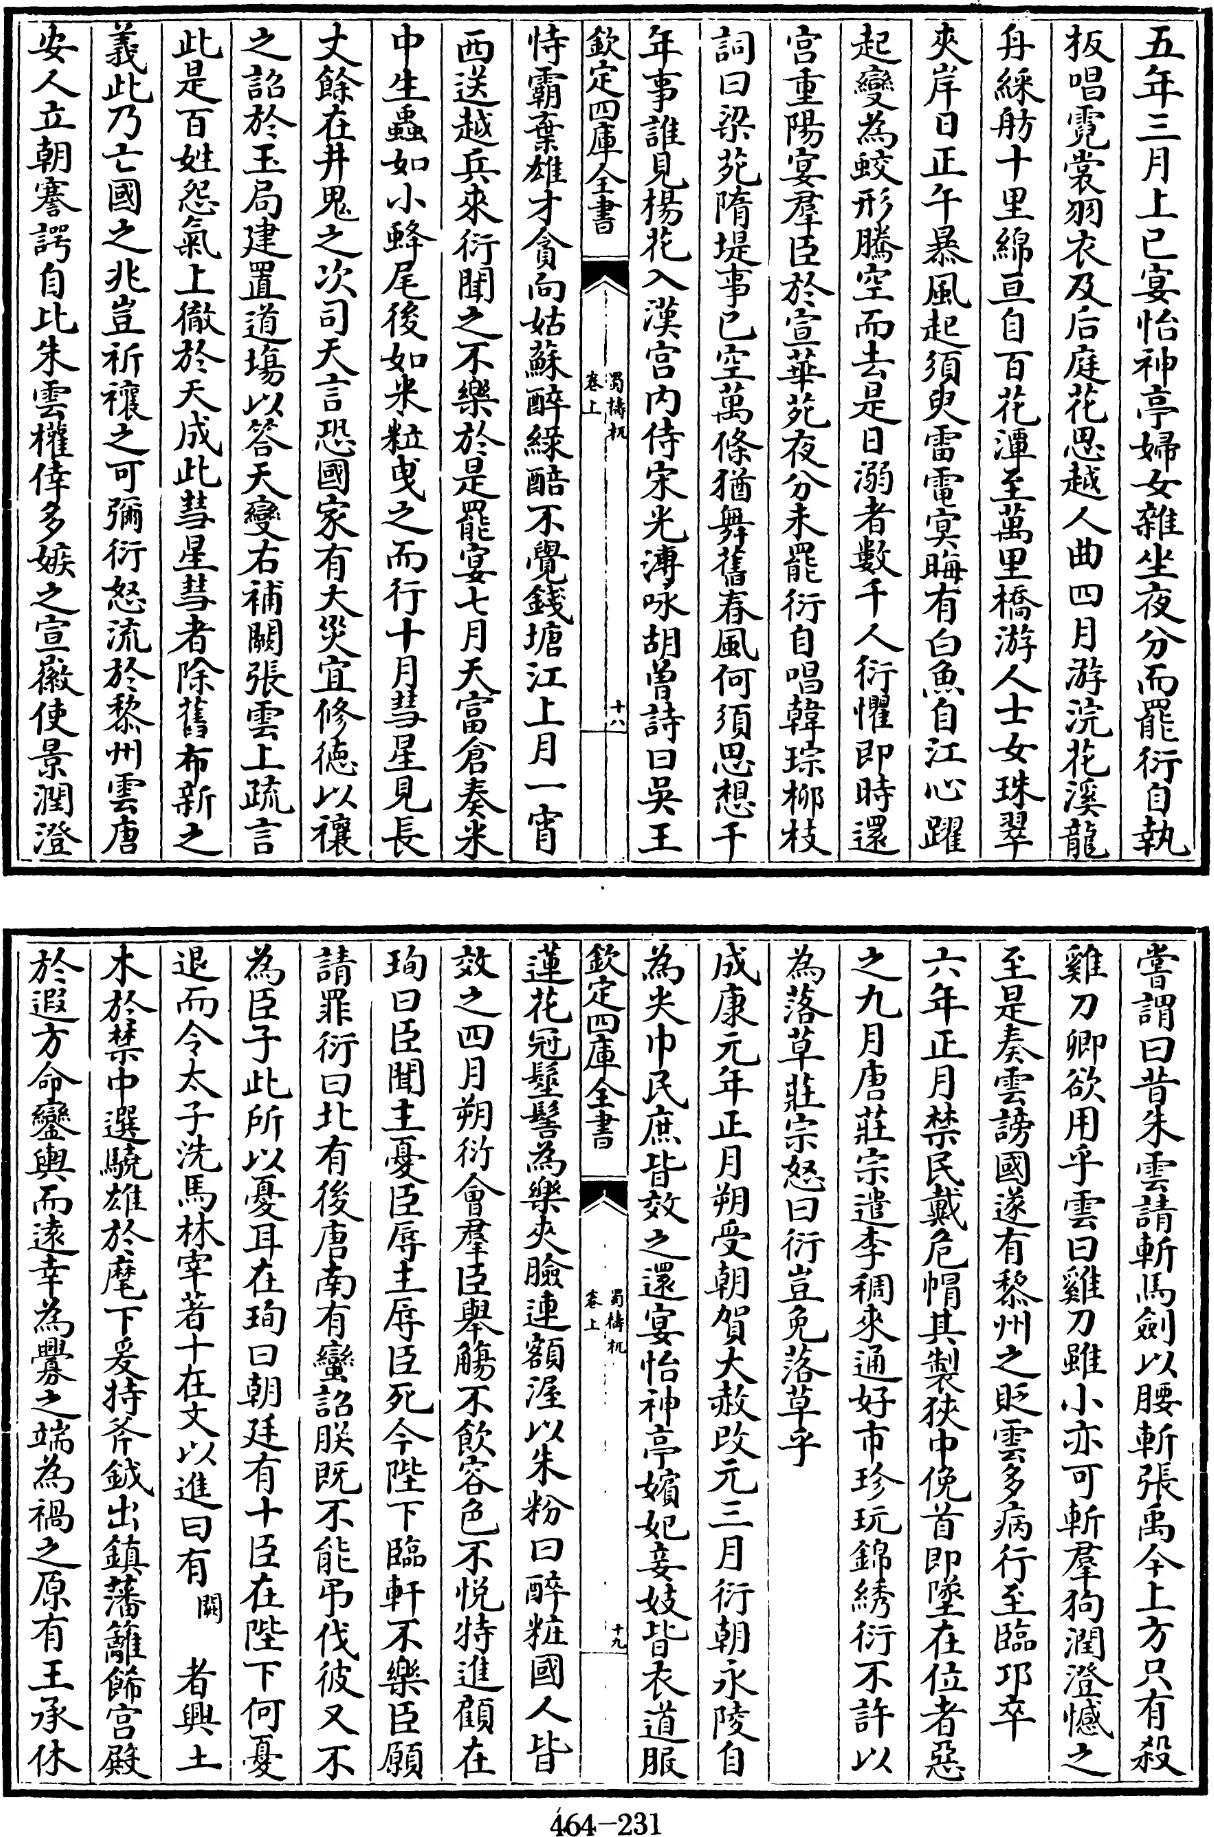 五年三月上巳宴怡神亭婦女雜坐夜分而罷衍自執
板唱霓裳羽衣及后庭花思越人曲四月游浣花溪龍
舟綵舫十里綿亘自百花潭至萬里橋游人士女珠翠
夾岸日正午暴風起須臾雷電㝠晦有白魚自江心躍
起變為蛟形騰空而去是日溺者數千人衍懼即時還
宫重陽宴羣臣於宣華苑夜分未罷衍自唱韓琮柳枝
詞曰梁苑隋堤事已空萬條猶舞舊春風何須思想千
年事誰見楊花入漢宫内侍宋光溥咏胡曾詩曰吳王
欽定四庫全書
蜀檮杌
卷上
十八
恃霸棄雄才貪向姑蘇醉綠醅不覺錢塘江上月一宵
西送越兵來衍聞之不樂於是罷宴七月天富倉奏米
中生蟲如小蜂尾後如米粒曳之而行十月彗星見長
丈餘在井鬼之次司天言恐國家有大災宜修德以禳
之詔於玉局建置道場以答天變右補闕張雲上疏言
此是百姓怨氣上徹於天成此彗星彗者除舊布新之
義此乃亡國之兆豈祈禳之可彌衍怒流於黎州雲唐
安人立朝謇諤自比朱雲權倖多嫉之宣徽使景潤澄
嘗謂曰昔朱雲請斬馬劍以腰斬張禹今上方只有殺
雞刀卿欲用乎雲曰雞刀雖小亦可斬羣狗潤澄憾之
至是奏雲謗國遂有黎州之貶雲多病行至臨邛卒
六年正月禁民戴危帽其製狹中俛首即墜在位者惡
之九月唐莊宗遣李稠來通好市珍玩錦綉衍不許以
為落草莊宗怒曰衍豈免落草乎
成康元年正月朔受朝賀大赦改元三月衍朝永陵自
為尖巾民庶皆效之還宴怡神亭嬪妃妾妓皆衣道服
欽定四庫全書
蜀檮杌
卷上
十九
蓮花冠髽髻為樂夾臉連額渥以朱粉曰醉粧國人皆
效之四月朔衍會羣臣舉觴不飲容色不悦特進顧在
珣曰臣聞主憂臣辱主辱臣死今陛下臨軒不樂臣願
請罪衍曰北有後唐南有蠻詔朕既不能弔伐彼又不
為臣子此所以憂耳在珣曰朝廷有十臣在陛下何憂
退而令太子洗馬林宰著十在文以進曰有闕者興土
木於禁中選驍雄於麾下爰持斧鉞出鎮藩籬飾宫殿
於遐方命鑾輿而遠幸為釁之端為禍之原有王承休
464-231